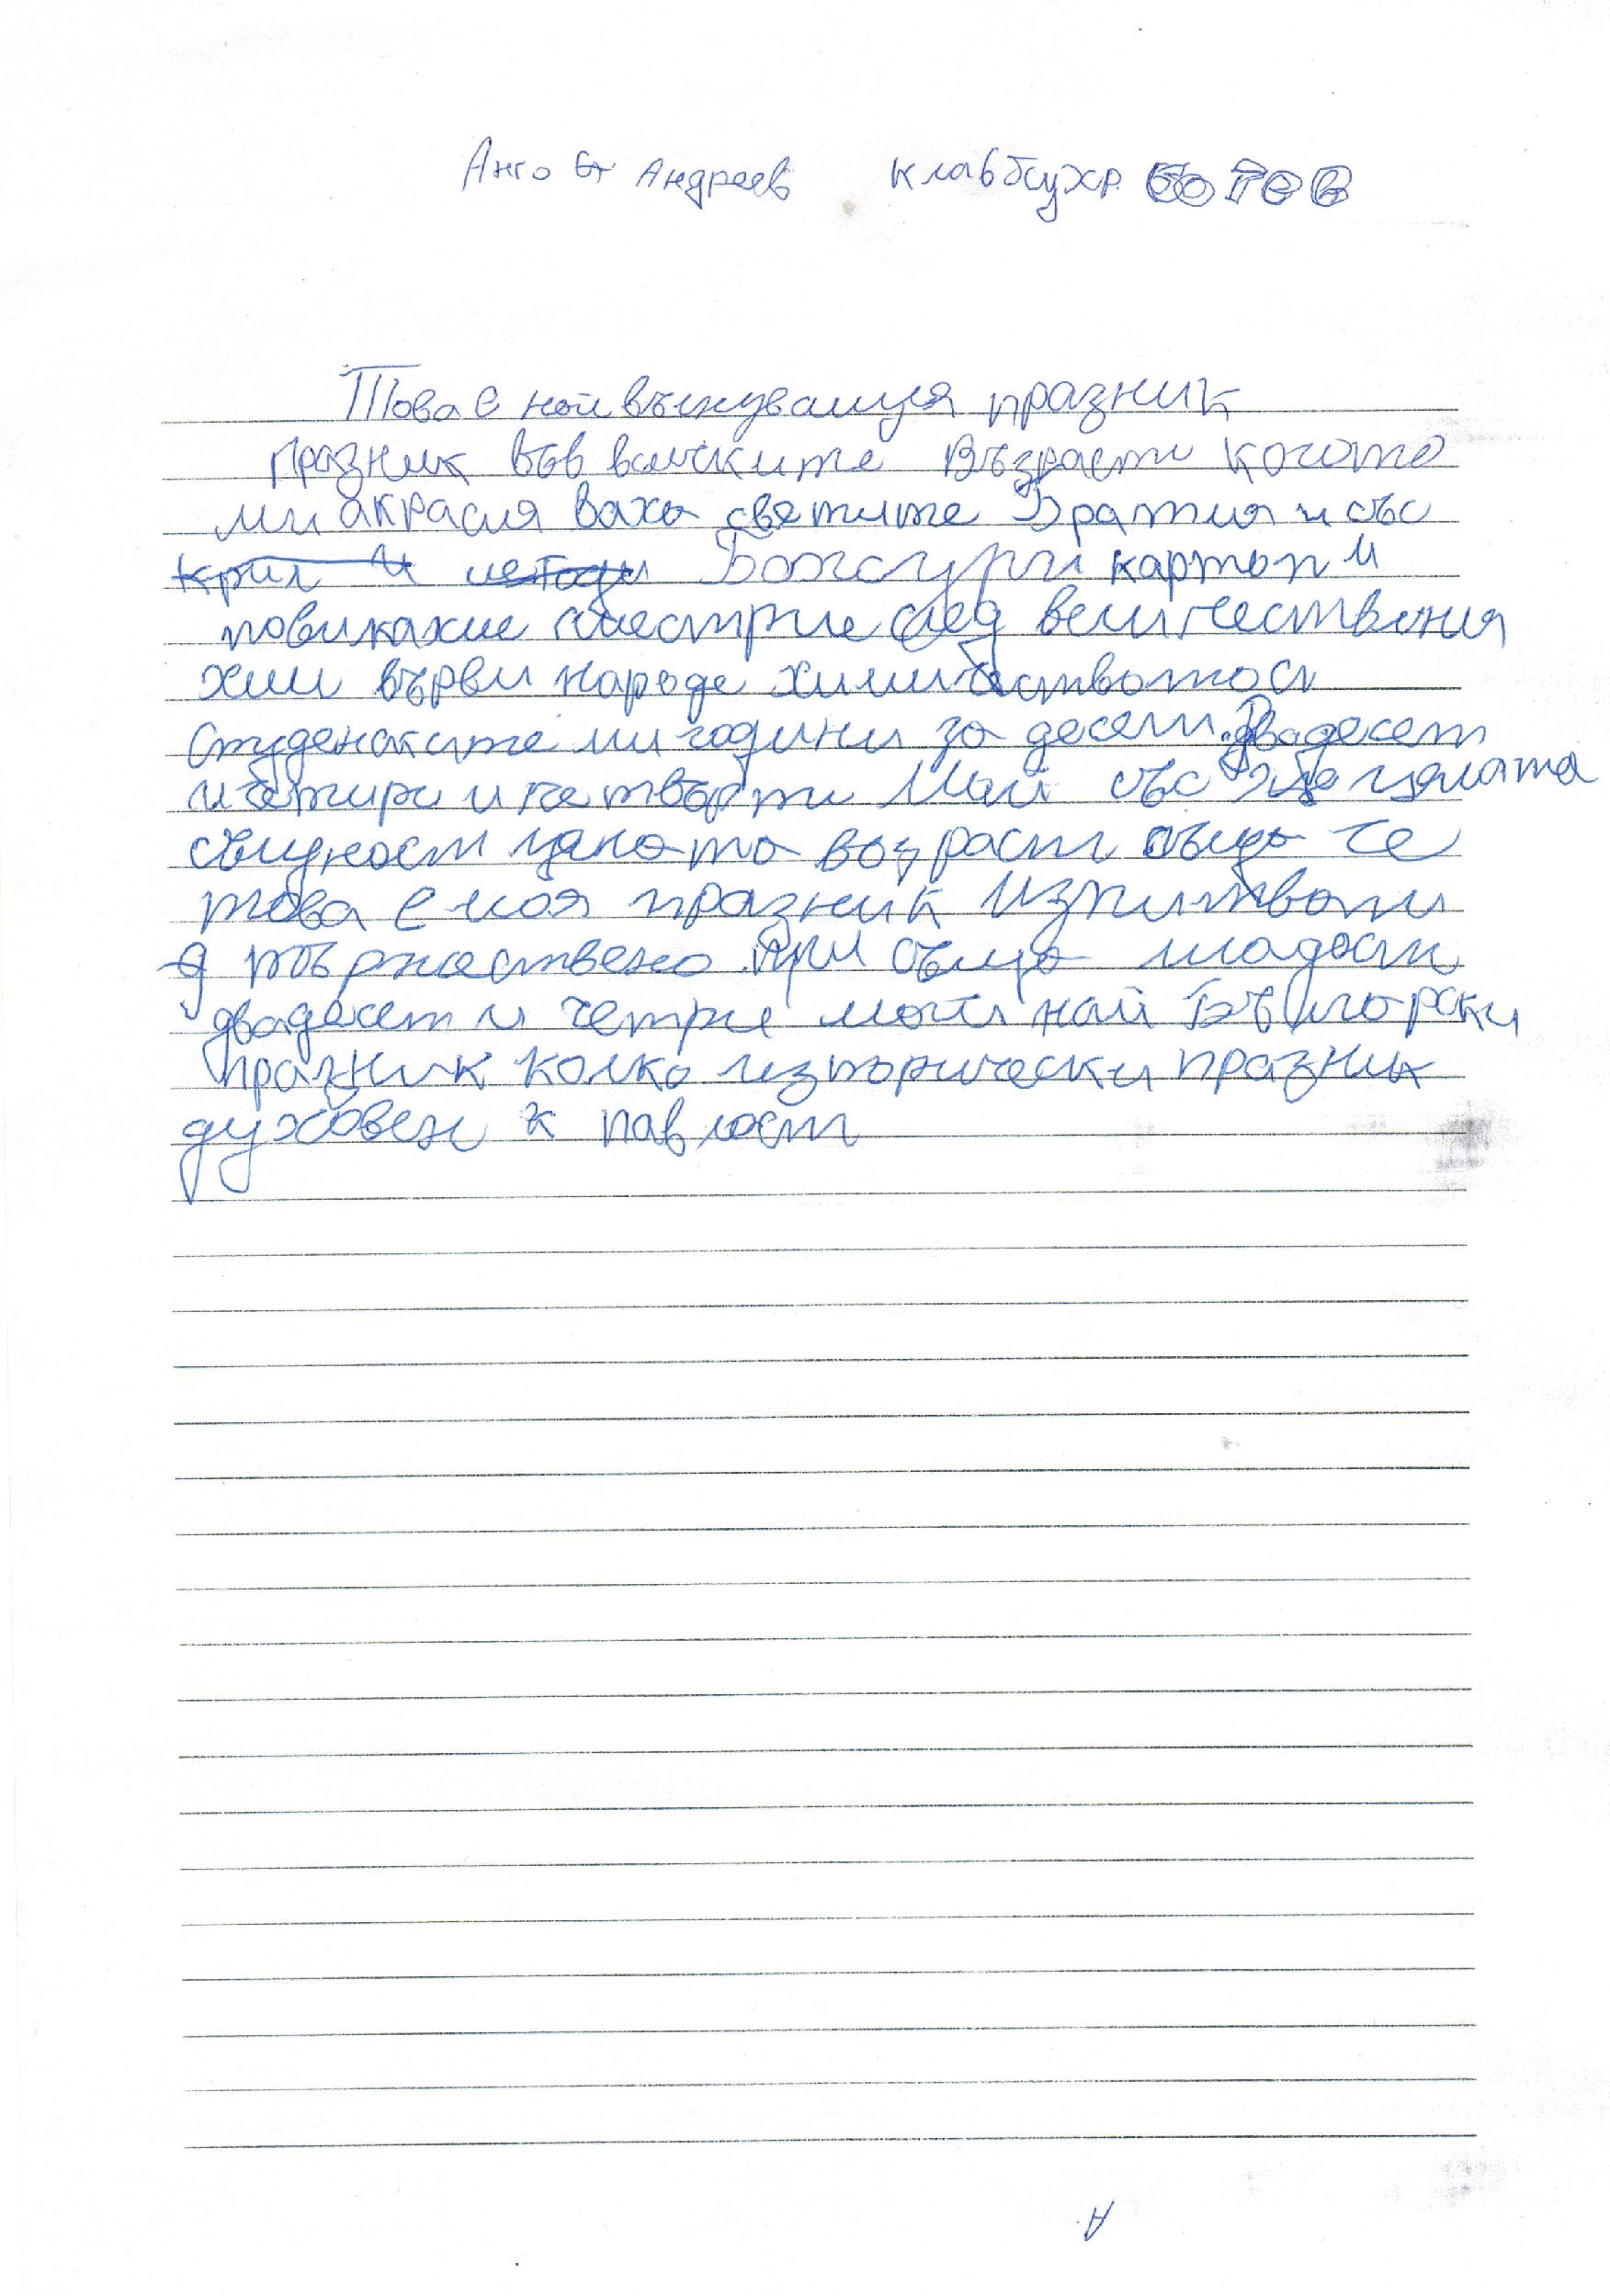 Анго Ст Андреев клав 6 сухр. БОТЕВ
Това е най вълнуващия празник
празник във всичките възрасти когато
ми акрасля ваха светите Братия и със
Божсури картон и
повикахме след величествения
хим върви народе химичествотоси
студенските ми години за десети. двадесет
и четири и четвърти Май със цялата
същност цяната възраст също че
това е моя празник Изпитвани
я тържествено при също младост
двадесет и четре моя най Български
празник колко изторически празник
духовен к павлост
А